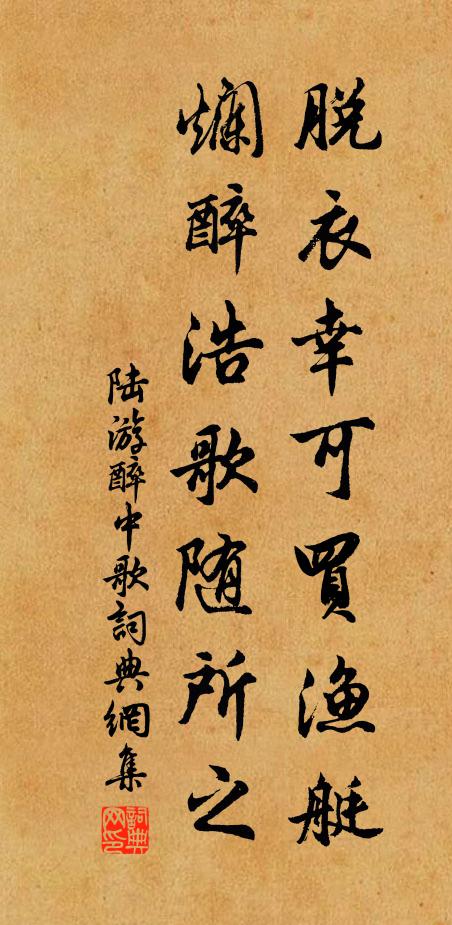 脱衣幸可買漁艇
爛醉浩歌随所之
陆游醉中歌詞典網集
詞典网印